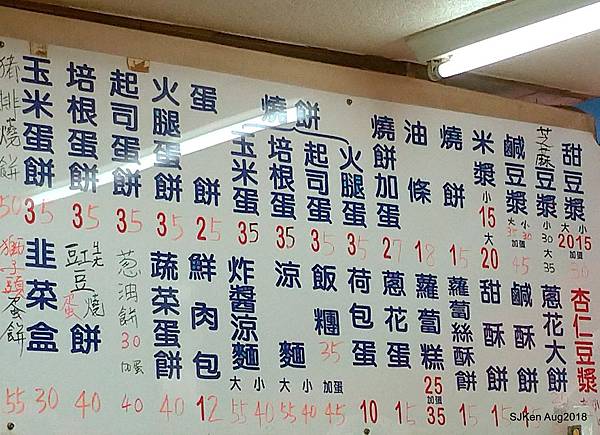 甜豆漿 大 小 2015
芝麻豆漿 小 30 大 35
鹹豆漿 大 小 35 30 加蛋 45
米漿 小 15 大 20
燒餅 15
油條 18
燒餅加蛋 27
燒餅
火腿蛋 35
起司蛋 35
培根蛋 35
玉米蛋 35
蛋餅 25
火腿蛋餅 35
起司蛋餅 35
培根蛋餅 35
玉米蛋餅 35
豬排燒餅 50
杏仁豆漿
蔥花大餅
鹹酥餅 15
甜酥餅 15
蘿蔔絲酥餅 15
蘿蔔糕 25 加蛋 35
蔥花蛋 15
荷包蛋 10
飯糰 35 加蛋 45
涼麵 大 小 50 40
炸醬涼麵 大 小 55 40
鮮肉包 12
蔬菜蛋餅 40
蔥油餅 30 加蛋 40
豆燒餅 40
韭菜盒 30
獅子頭蛋餅 55
SJKen Aug2018